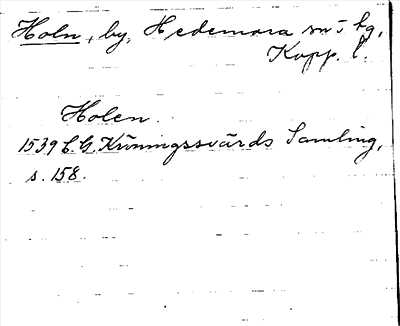 Holn, by, Hedemora sn o hg,
Kopp. l.
Holen.
1539 C.G. Kröningssvärds Samling,
s. 158.